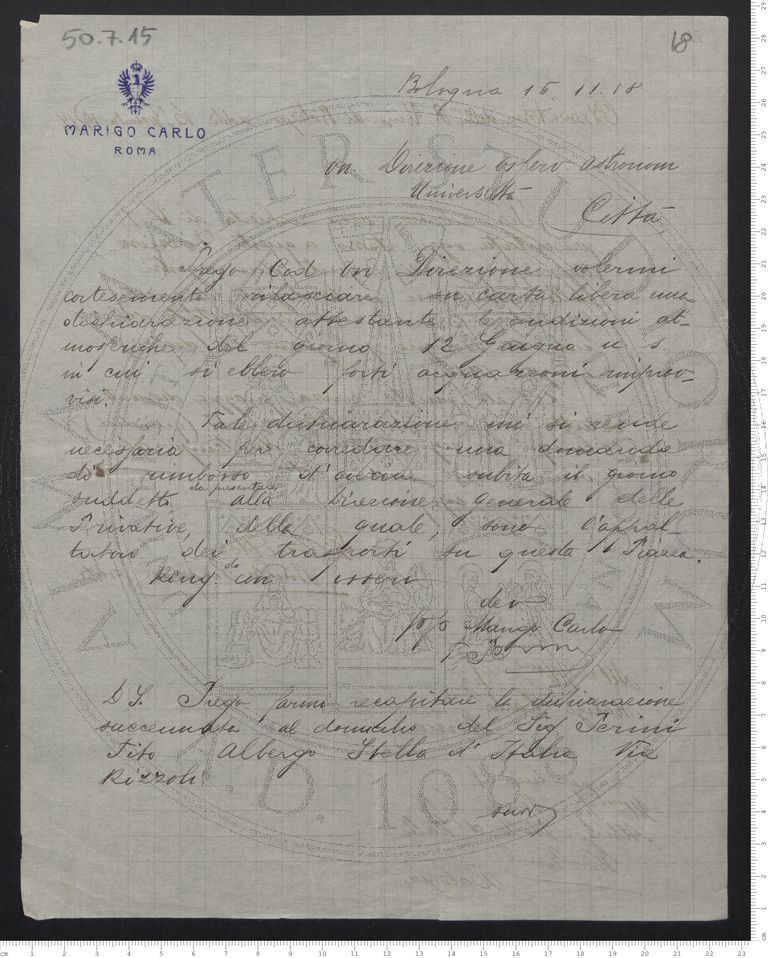 50.7.15
18
MARIGO CARLO
ROMA
Bologna 15 11.18
On Direzione osserv. astronom
Università
Città
Prego Cod. On Direzione volermi
cortesemente rilasciare su carta libera una
dichiarazione attestante le condizioni at-
mosferiche del giorno 12 Giugno u s
in cui si ebbero forti acquazzoni improv-
visi.
Tale dichiarazione mi si rende
necessaria per corredare una domanda
di rimborso subita il giorno
suddetto da presentarsi alla Direzione generale delle
Privative, della quale, sono l'appal-
tatore dei trasporti su questa Piazza.
Ring.do con
dev
p/o Marigo Carlo
P S. Prego farmi recapitare la dichiarazione
succennata al domicilio del Sig Perini
Tito Albergo Stella d'Italia Via
Rizzoli.
ALMA MATER STUDIORUM
A.D. 1088